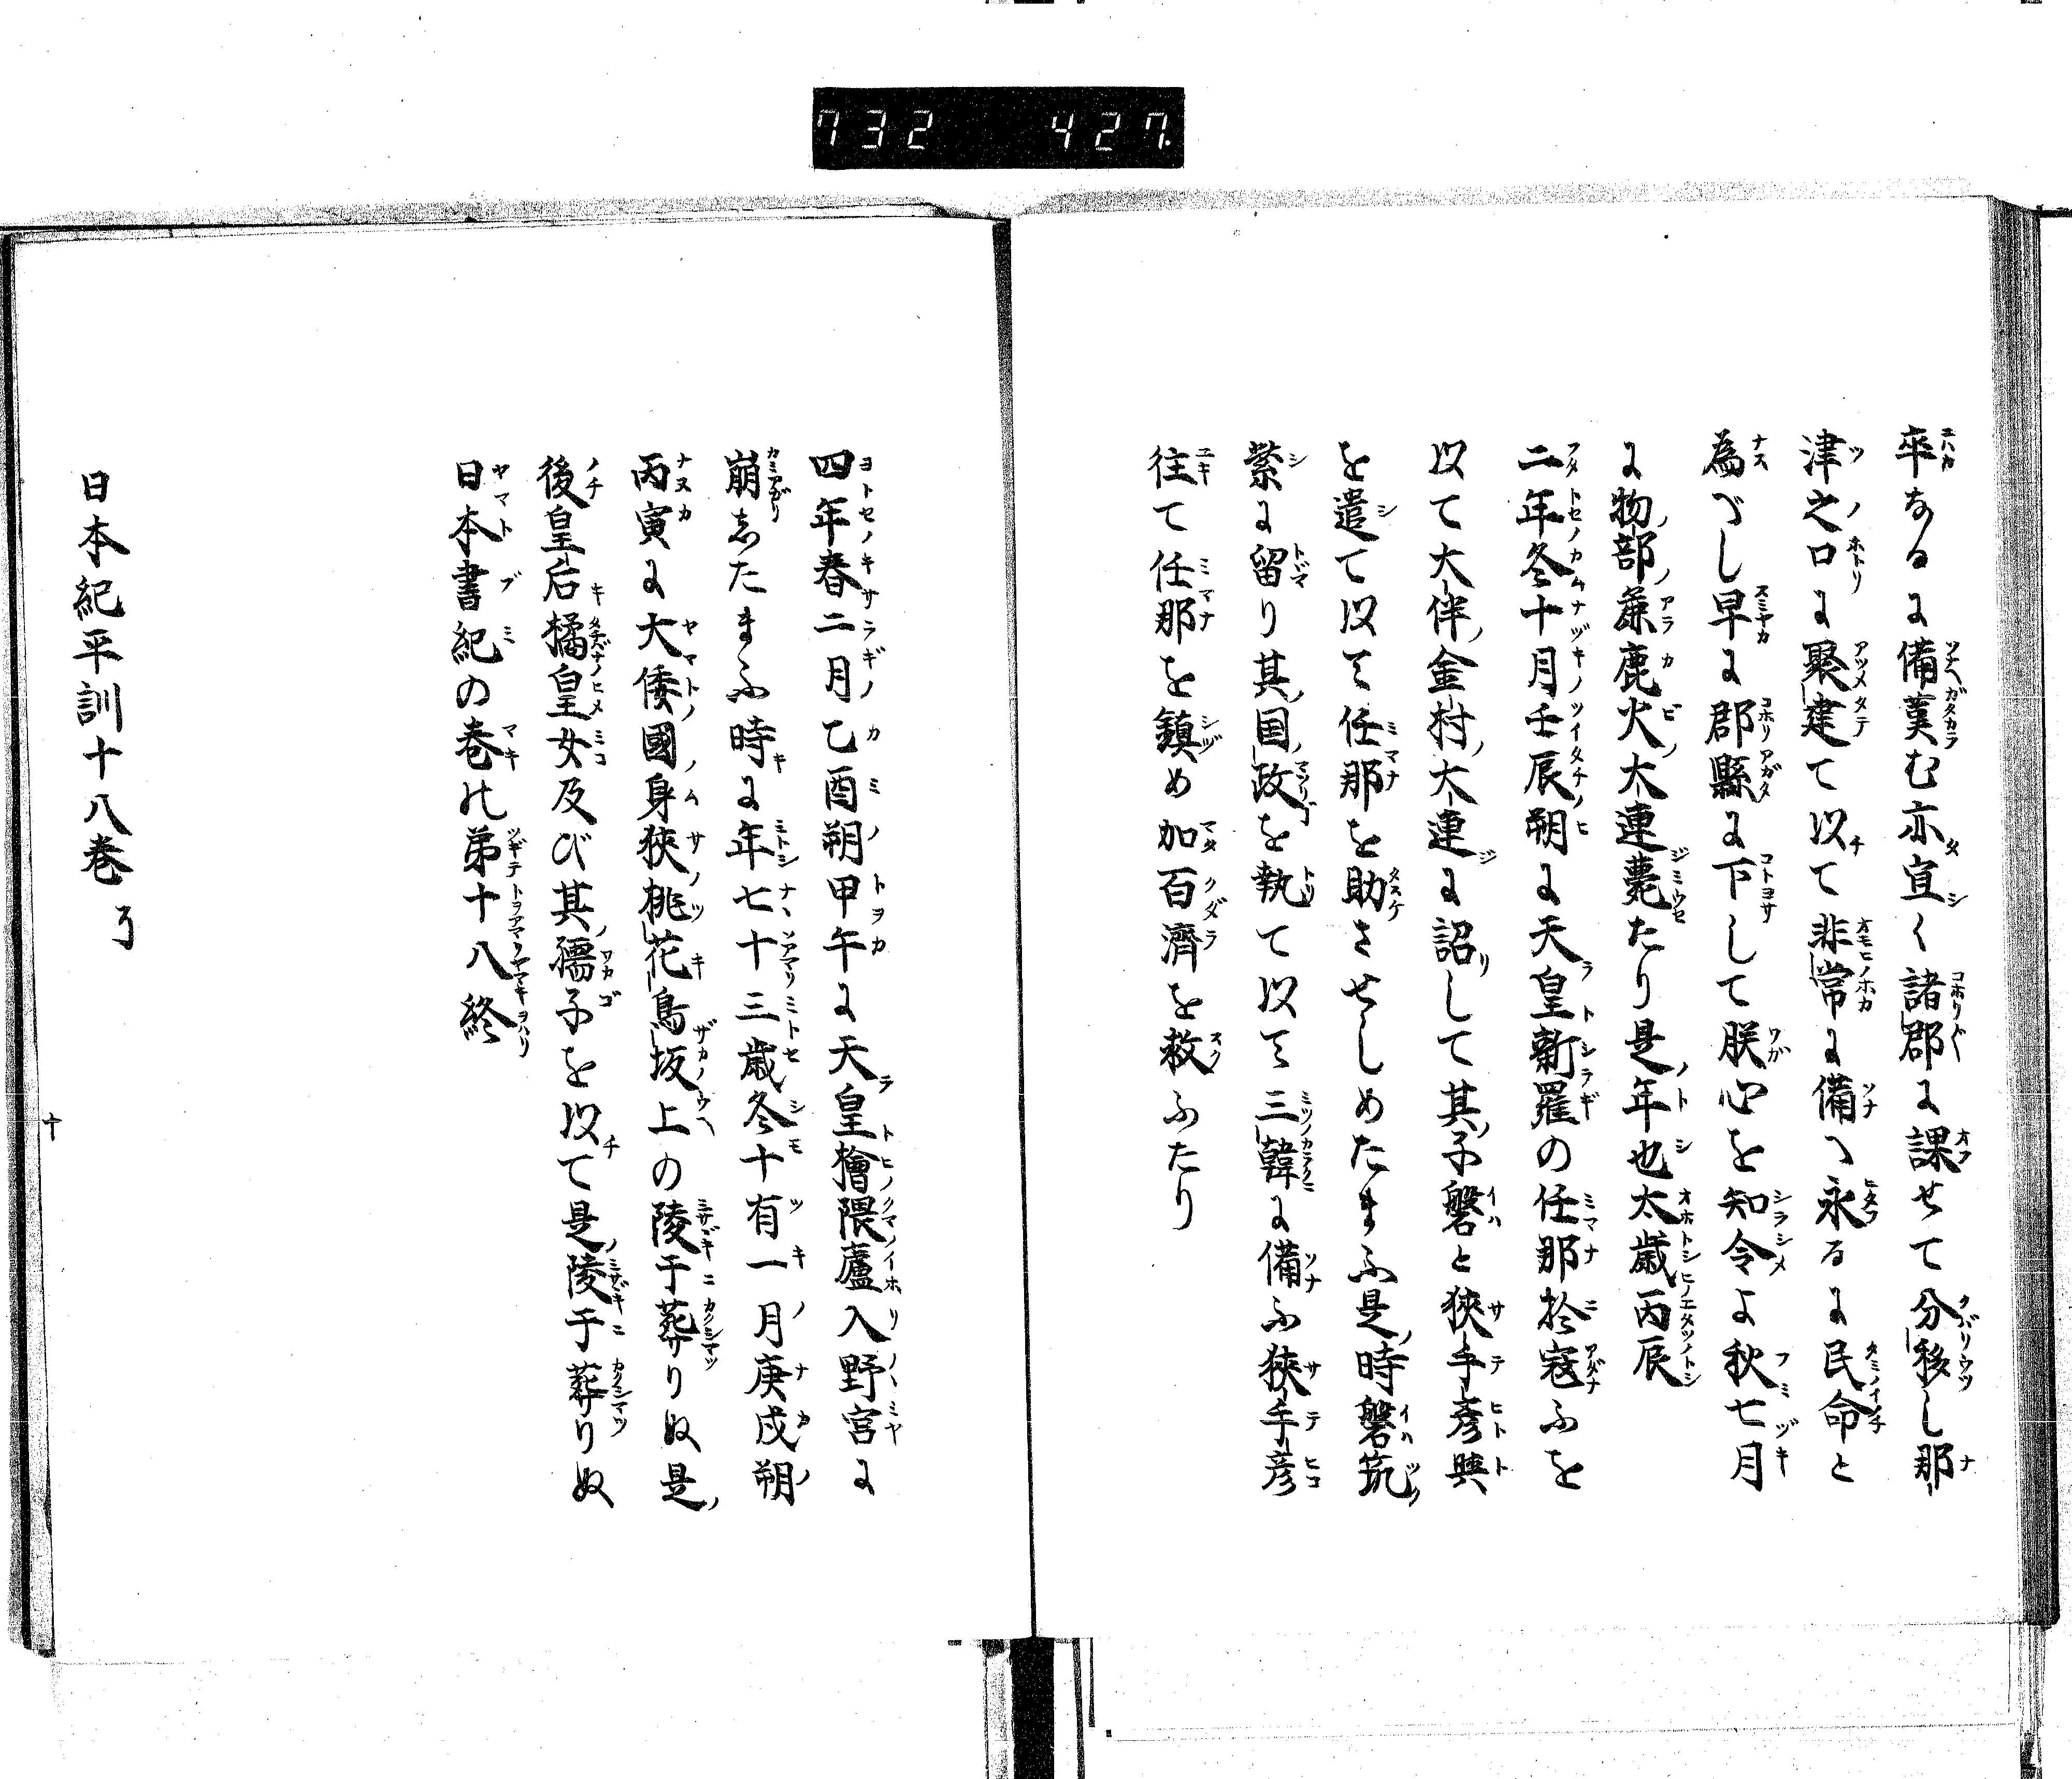 732 427.
卒なるに備難む亦宜く諸郡に課せて分移し那
津之口に聚建て以て非常に備へ永るに民命と
為べし早に郡縣に下して朕心を知令よ秋七月
に物部麁鹿火大連薨たり是年也太歳丙辰
二年冬十月壬辰朔に天皇新羅の任那於寇ふを
以て大伴金村大連に詔して其子磐と狹手彦與
を遣て以て任那を助させしめたまふ是時磐筑
紫に留り其国政を執て以て三韓に備ふ狹手彦
往て任那を鎮め加百濟を救ふたり
四年春二月乙酉朔甲午に天皇檜隈廬入野宮に
崩志たまふ時に年七十三歳冬十有一月庚戌朔
丙寅に大倭國身狹桃花鳥坂上の陵于葬りぬ是
後皇后橘皇女及び其孺子を以て是陵于葬りぬ
日本書紀の巻の第十八終
日本紀平訓十八巻 了
十